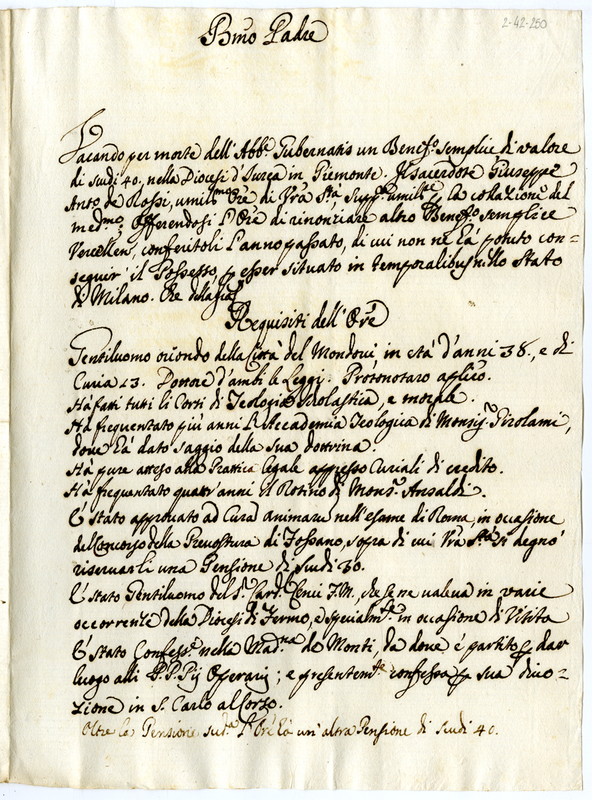 2-42-250
Bmo Padre
Vacando per morte dell'Abb.e Tubernatis un Benef.o semplice di valore
di scudi 40. nella Diocesi d'            in Piemonte. Il Sacerdote Giuseppe
Ant.o de Rossi, umiliss.mo Ore di Vra Stà, supp.a umilm.te p la collazione del
med.mo, offerendosi l'Ore di rinonziare altro Benef.o semplice
Vercellen, conferitoli l'anno passato, di cui non ne hà potuto con=
seguir il Possesso, p esser situato in temporalibus nello Stato
di Milano. Che della
Requisiti dell'Ore
Gentiluomo oriondo della Città del Mondovì in età d'anni 38., e di
Curia 13. Dottore d'ambi le Leggi. Protonotaro aplico.
Hà fatti tutti li Corsi di Teologia scholastica, e morale.
Hà frequentato più anni l'Accademia Teologica di Monsig.r Girolami,
dove hà dato saggio della sua dottrina.
Hà pure atteso alla Prattica legale appresso Curiali di credito.
Hà frequentato quattr'anni il Rotino di Mons.r Ansaldi.
E stato approvato ad Curā animarū nell'esame di Roma, in occasione
del Concorso della Prevostura di Fossano, sopra di cui Vra Stà si degnò
riservarli una Pensione di scudi 30.
E stato Gentiluomo del S.r Card. Cenci F.M., che se ne valeva in varie
occorrenze della Diocesi di Fermo, e specialm.te in occasione di Visita
E stato Confess.e nella Mad.na de Monti, da dove è partito p dar
luogo alli P.P. Pij Operarij; e presentem.te confessa p sua divo=
zione in S. Carlo al Corso.
Oltre la Pensione sud.a l'Ore hà un'altra Pensione di scudi 40.